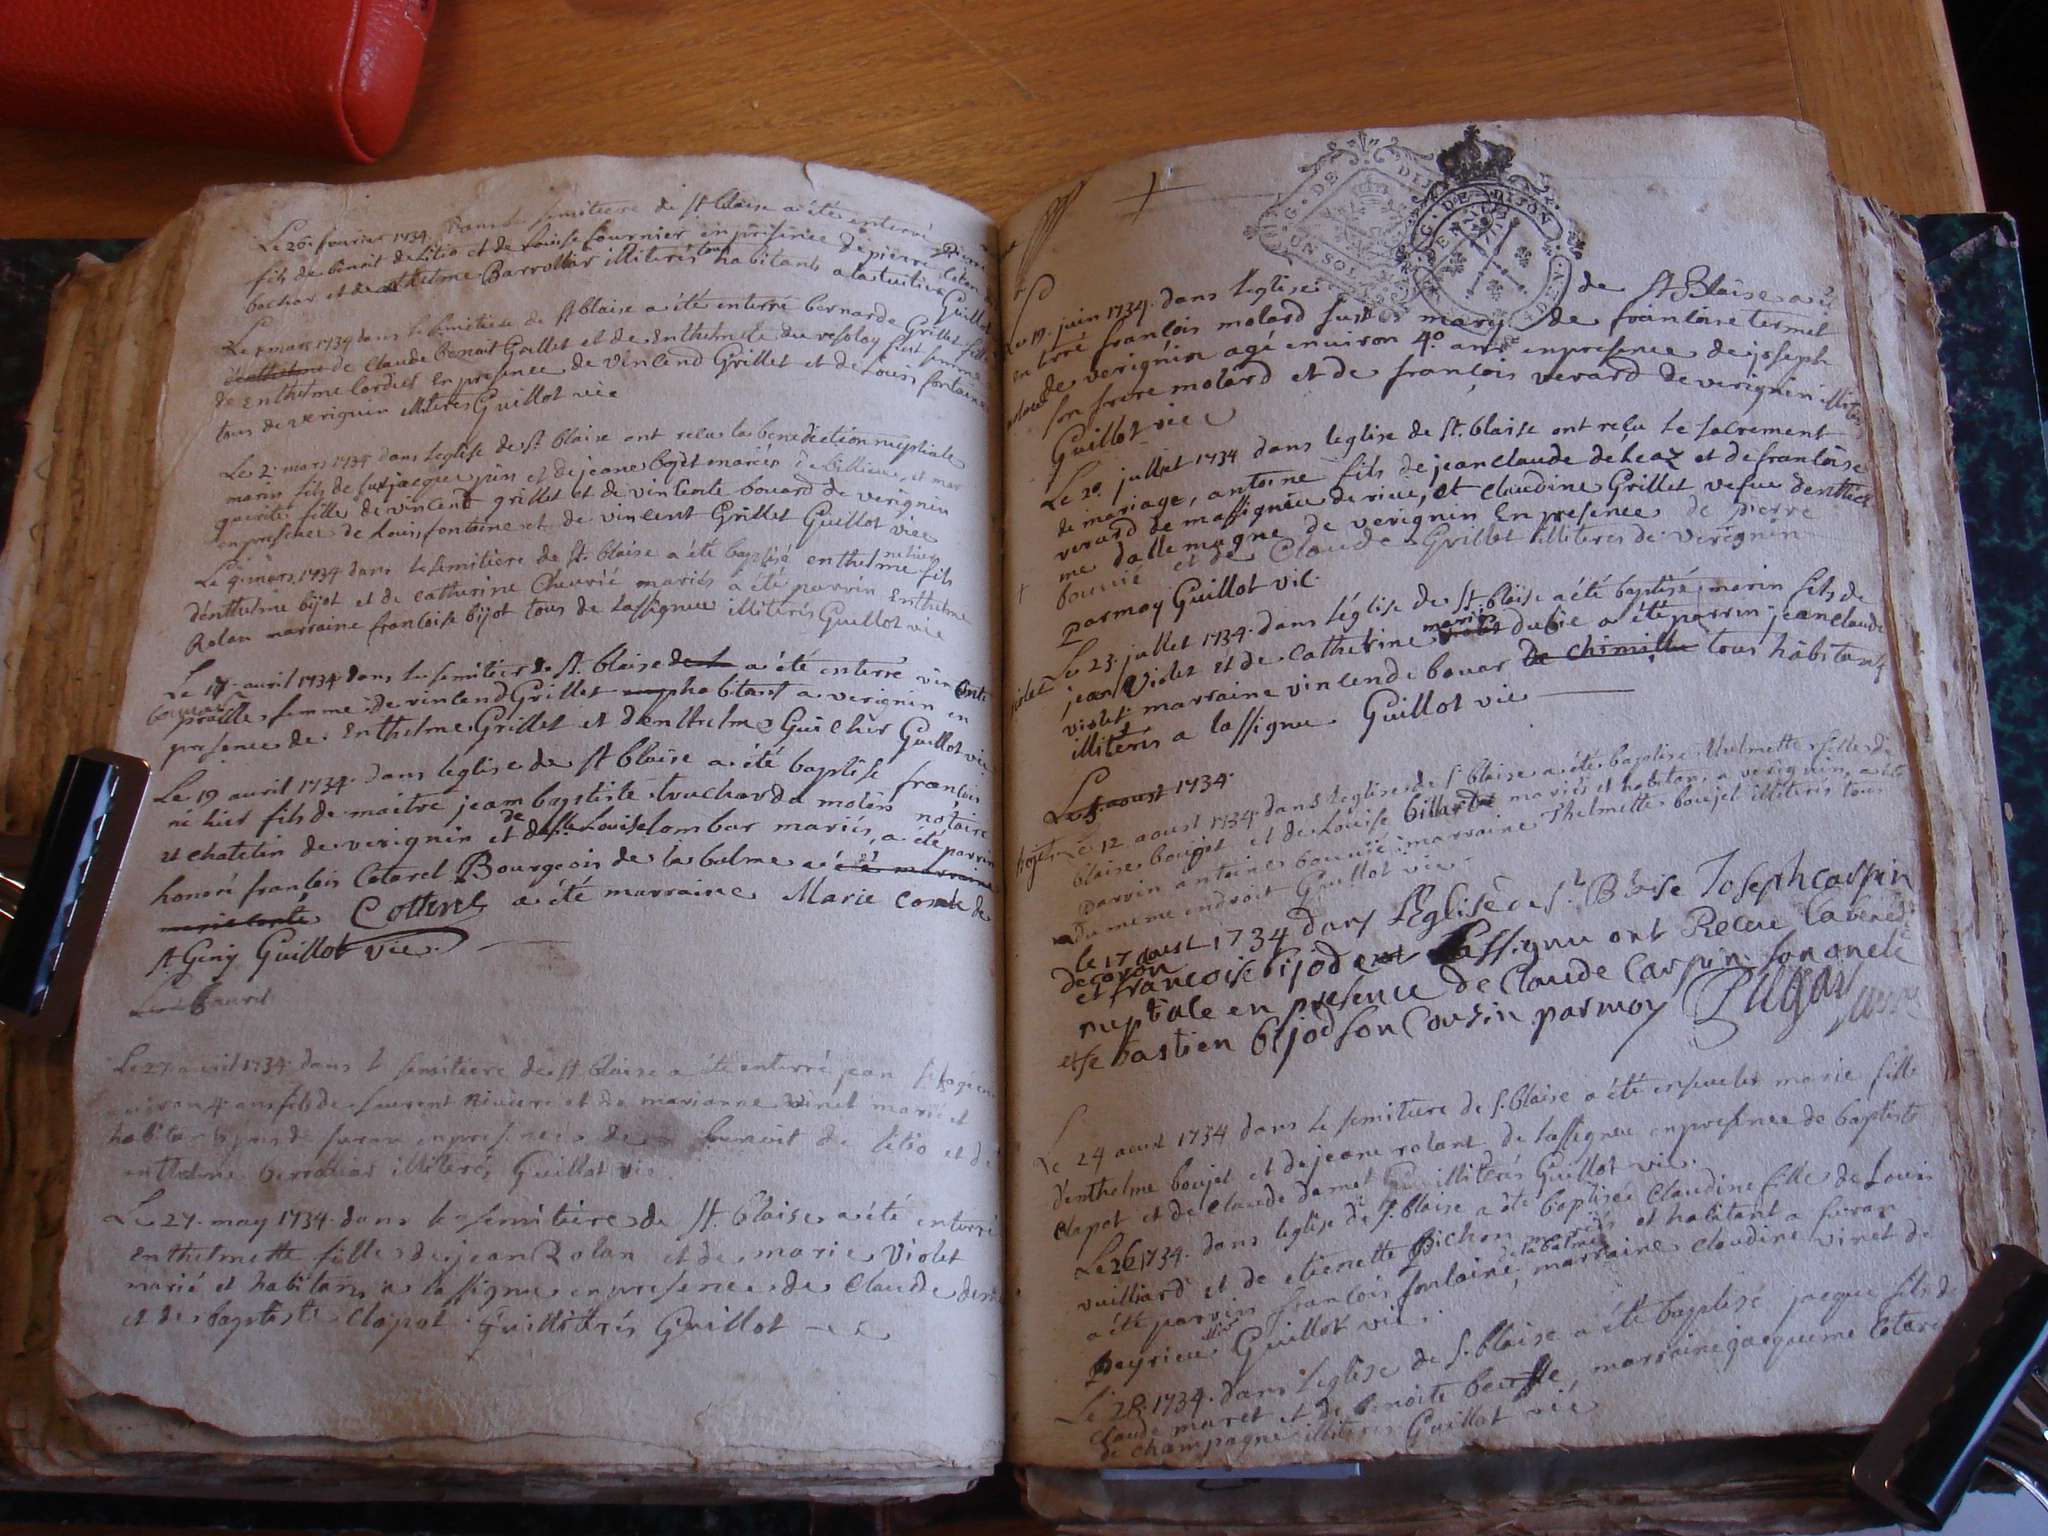 Le 26e fevrier 1734 Dans le semitiere de St blaise a été enterré Pierre
fils de benoit de litio et de Louise fournier en présence de pierre
bochar et de enthelme Barrollier illiterés tous habitants a
Guillot
Le 1 mars 1734 dans le semitiere de St blaise a été enterré bernarde Grillet fille
de Claude benoit Grillet et de Enthelmete du resoloy
de Enthelme Cordier En presence de vincend Grillet et de Louis fontaine
tous de verignin illiterés Guillot vic
Le 2 mars 1734 dans leglise de St blaise ont recus la benediction nuptiale
marin fils de fut jacque juin et de jeane bojot mariés de billieu, et mar
guerite fille de vincend grillet et de vincente bouard de verignin
en presence de Louis fontaine et de vincent Grillet Guillot vic
Le 9 mars 1734 dans le semitiere de St blaise a été baptisé enthelme fils
d'enthelme bijot et de catherine Chevrié mariés a été parrin Enthelme
Rolan marraine francoise bijot tous de Lassignieu illiterés Guillot vic
Le 17 avril 1734 dans le semitiere de St blaise a été enterré vincente
bouard
femme de vincend Grillet habitant a verignin en
presence de Enthelme Grillet et d'enthelme Guicher Guillot vic
Le 19 avril 1734 dans leglise de St blaise a été baptisé francois
né hier fils de maitre jean baptiste truchard du molin notaire
et chatelin de verignin et de delle Louise lombar mariés, a été parrin
honoré françois Cotarel Bourgeois de la balme a été marraine
marie conte Cottarel a été marraine Marie Comte de
St Geniy Guillot vic.
Le 6 avril
Le 27 avril 1734 dans le semitiere de St blaise a été enterré jean agé
environ 4 ans fils de laurent riviere et de marianne vinet marié et
habitans pres de furan en presence de benoit de litio et d
enthelme berrollier illiterés Guillot vic
Le 27 may 1734 dans le semitiere de St blaise a été enterré
Enthelmette fille de jean Rolan et de marie Violet
marié et habitans a lassignieu en presence de Claude
et de baptiste Clapot illiterés Guillot vic
G. DE DIJON
UN SOL
G. DE DIJON
Le 19 juin 1734 dans leglise de St Blaise a été
enterré francois molard fust mary de francoise termet
de verignin agé environ 40 ans en presence de joseph
son frere molard et de françois verard de verignin illiterés
Guillot vic
Le 20 juillet 1734 dans leglise de St blaise ont reçu le sacrement
de mariage, antoine fils de jean claude deleaz et de francoise
verard de massignieu de rive, et Claudine Grillet vefue denthel
me dallemagne de verignin En presence de pierre
bouvié et de Claude Grillet illiterés de verignin
parmoy Guillot vic.
Le 23 juillet 1734 dans léglise de St blaise a été baptisé marin fils de
jean Violet et de Catherine mariés dubie a été parrin jean claude
violet marraine vincende bouar de chimillu tous habitans
illiterés a lassignieu Guillot vic
Le 5 aoust 1734.
Le 12 aoust 1734 dans leglise de St blaise a été baptisée thelmette fille de
blaise boujet et de Louise billardet mariés et habitans a verignin, a été
parrin antoine bouvié marraine Thelmette boujet illiterés tous
du meme endroit Guillot vic
le 17 aoust 1734 dans L'Eglise de St Blaise Joseph carpin
de ceron
et francoise bijod de Lassignieu ont Receu La bened
nuptale en presence de Claude Carpin son oncle
et sebastien bijod son Cousin par moy Pugeat
Le 24 aoust 1734 dans le semitiere de St blaise a été ensevelie marie fille
d'enthelme boujet et de jeane rolant de lassignieu en presence de baptiste
Clapot et de Claude demet illiterés Guillot vic.
Le 26 1734. dans leglise de St blaise a été baptisée Claudine fille de Louis
vuilliard et de etienette Bichon mariés et habitant a furan
a été parrin francois fontaine de la balme, marraine claudine vinet de
peyrieu illiterés Guillot vic.
Le 28 1734. dans leglise de St blaise a été baptisé jacque fils de
Claude maret et de benoite, marraine jacqueme Cotarel
de champagne illiterés Guillot vic